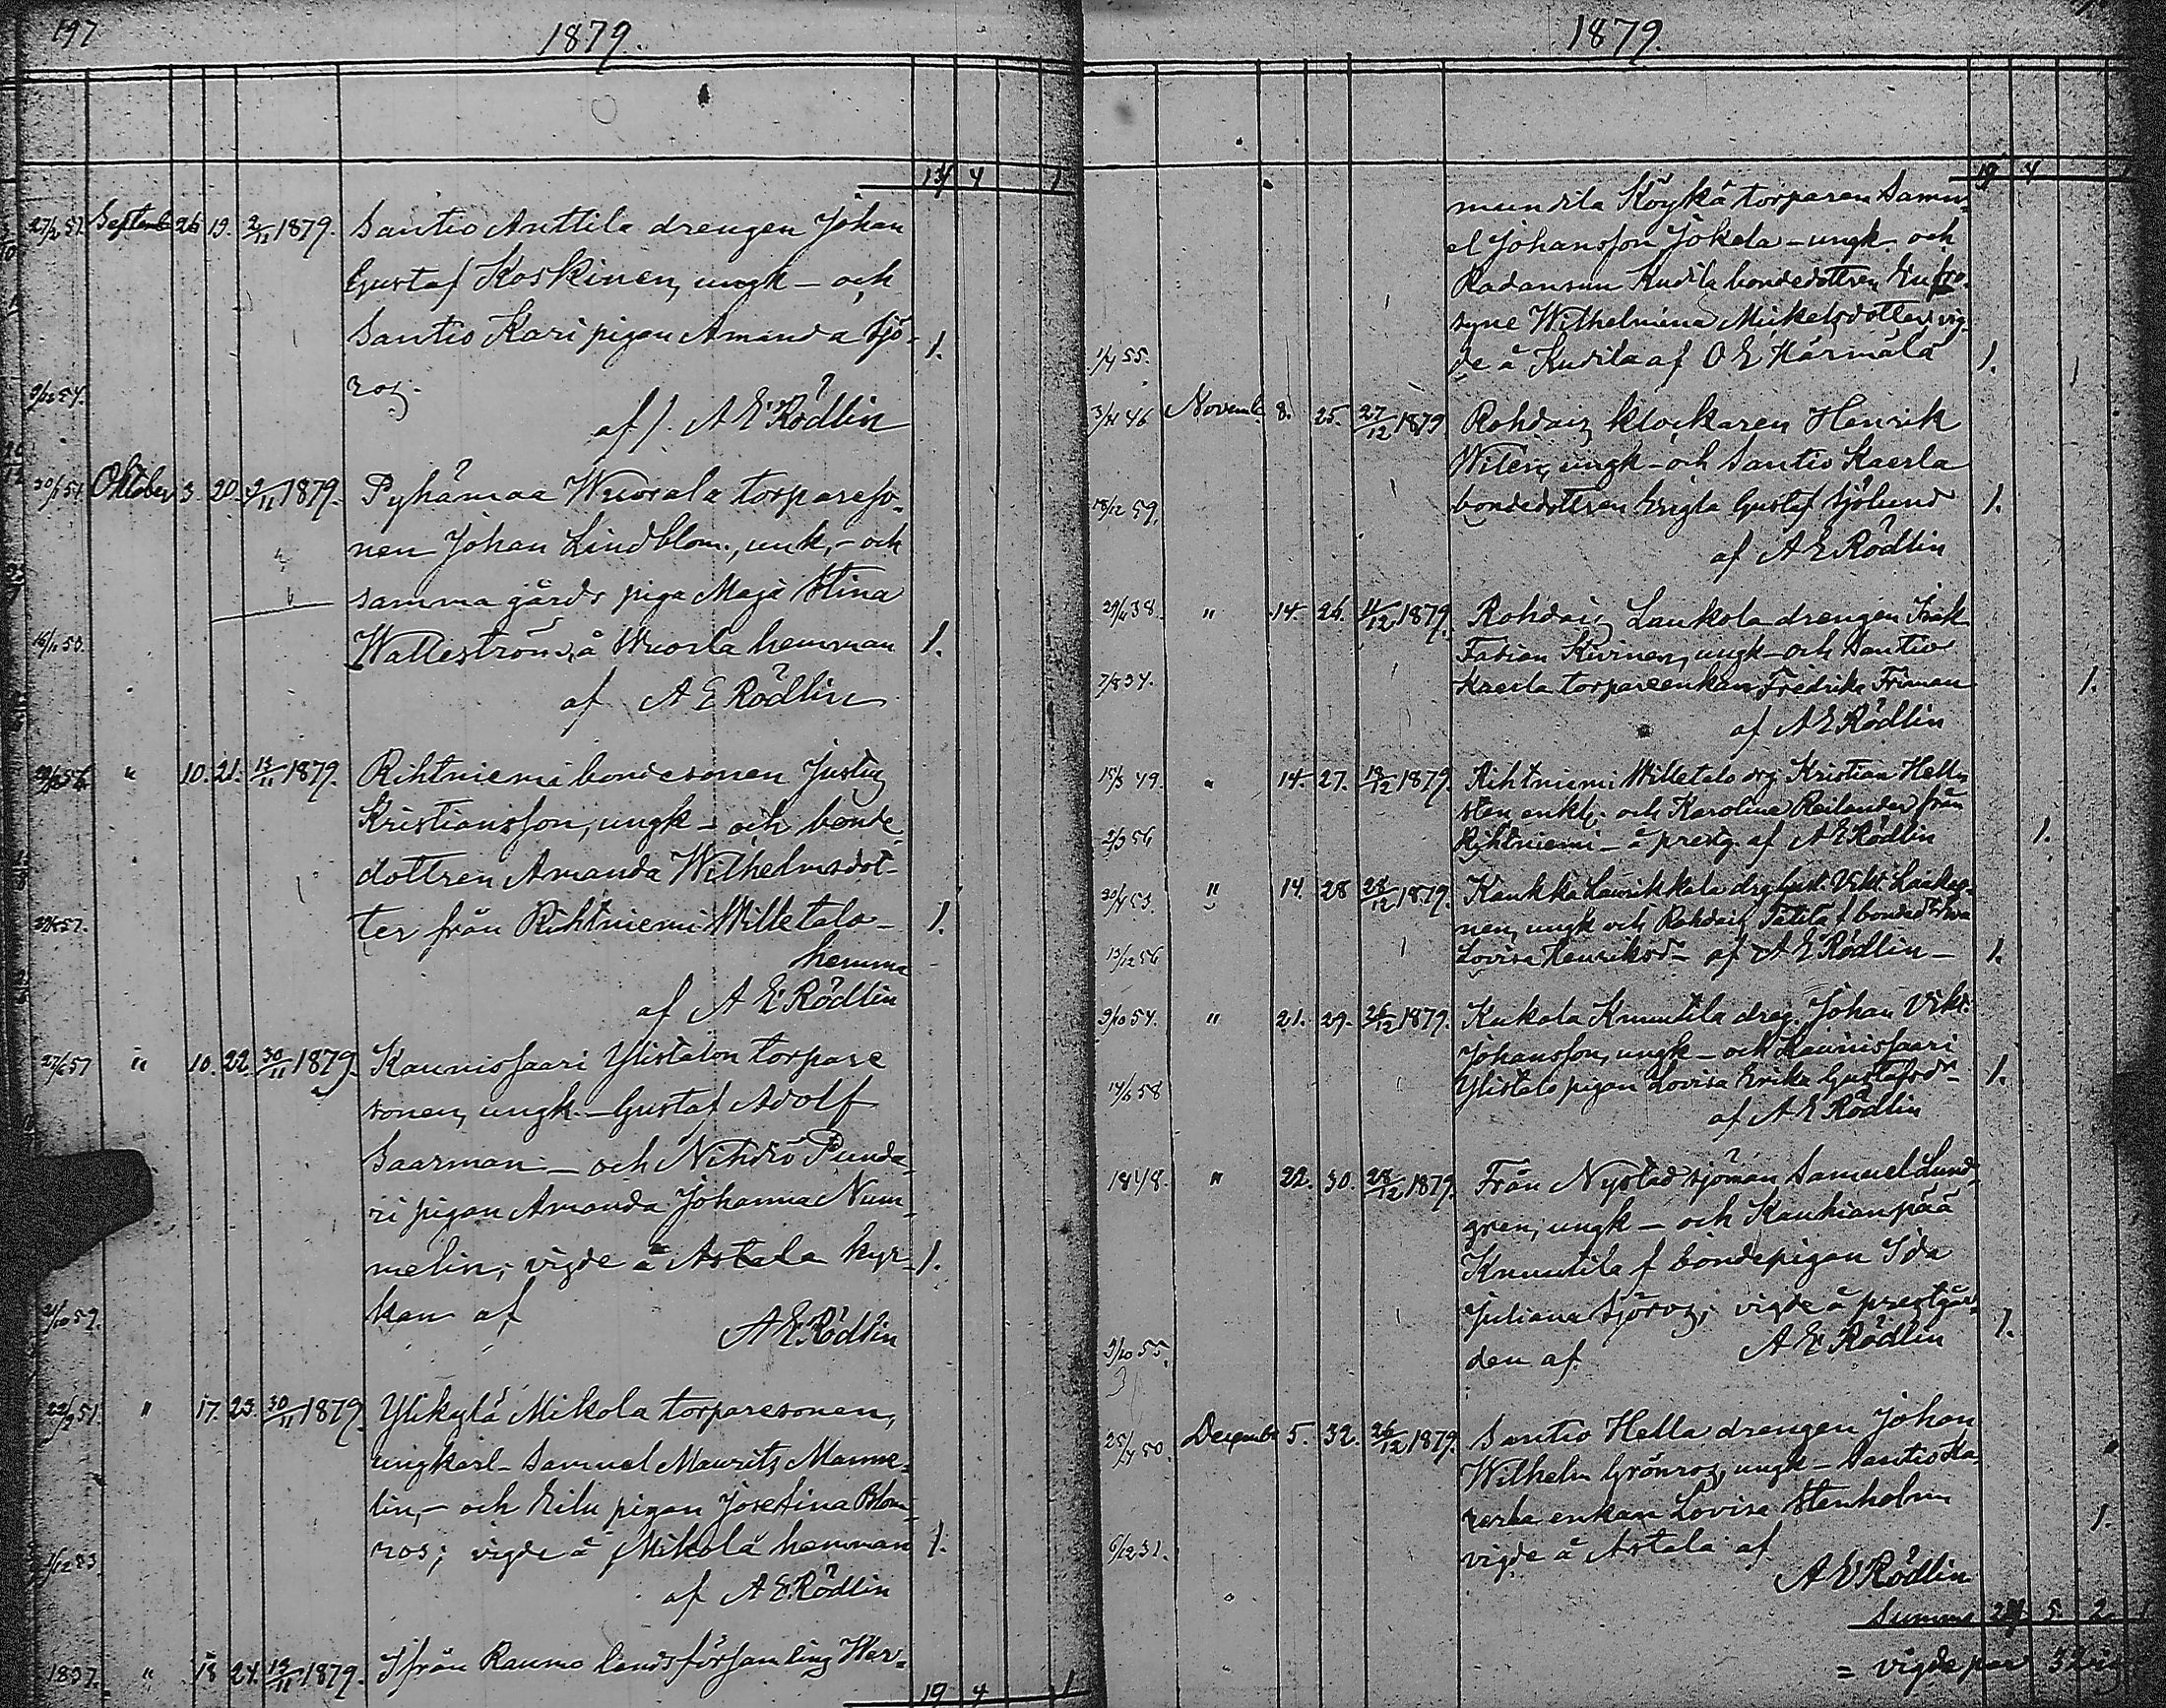 197
1879.
13 4 1
27/2 57. Septemb 26 19. 2/11 1879. Santio Anttila drengen Johan
Gustaf Koskinen, ungk - och
Santio Kari pigan Amanda Sjö- 1.
9/12 54. ros.
af /. A E Rödlin
30/1 54. Oktober 3. 20. 2/11 1879. Pyhämaa Wuorela torpareso-
nen Johan Lindblom, unk, - och
samma gårds piga Maja Stina
18/11 50. Walleström, å Wuorla hemman 1.
af A E Rödlin
" 10. 21. 13/11 1879. Rihtniemi bondesonen Justus
Kristiansson, ungk - och bonde
dottren Amanda Wilhelmsdot-
57. ter från Rihtniemi Willetalo - 1.
hemma
af A E Rödlin
27/6 57 " 10. 22. 30/11 1879. Kaunissaari Ylistalon torpare
sonen, ungk. - Gustaf Adolf
Saarman - och Nihdiö Punda-
ri pigan Amanda Johanna Num-
melin; vigde å Astala kyr- 1.
kan af
/10 59. A E Rödlin
22/9 51. " 17. 23. 30/11 1879. Ylikylä Mikola torparesonen,
ungkarl - Samuel Maurits Manne-
lin, - och Eilu pigan Josefina Blom-
ros; vigde å Mikola hemman 1.
af A E Rödlin
1837. " 18 24. 13/11 1879. Ifrån Raumo landsförsamling Wer-
19 4 1
1879.
19 4
mundila Köykä torparen Samu-
el Johansson Jokela - ungk - och
Radansuu Kudila bondedottren Eufro-
syne Wilhelmina Mickelsdotter vig-
1/4 55. de å Kudila af O E Härmälä 1.
46 Novemb. 8. 25. 27/12 1879. Rohdais klockaren Henrik
Witen, ungk - och Santio Kaerla
18/12 59. bondedottren Ewgla Gustaf Sjölund 1.
af A E Rödlin
29/4 38. " 14. 26. 4/12 1879. Rohdais Laukola drengen Isak
Fabian Kivinen, ungk - och Santio
7/8 34. Kaerla torpareenkan Fredrika Friman 1.
af A E Rödlin
15/3 49. " 14. 27. 18/12 1879. Rihtniemi Willetalo drg Kristian Hell-
sten enkl. och Karolina Reilander från
2/3 56 Rihtniemi - å prestg. af A E Rödlin 1.
53. " 14. 28 28/12 1879. Kaukka Laurikkala drg Gust. Vikt. Laakso-
nen, ungk och Rohdais Titila f bondedt Ewa
13/12 56 Lovisa Henriksd - af A E Rödlin - 1.
9/10 54. " 21. 29. 26/12 1879. Kukola Knuutila dreg. Johan Vikt.
Johansson, ungk - och Kaunissaari
14/6 58 Ylistalo pigan Lovisa Erika Gustafsdr - 1.
af A E Rödlin
1848. " 22. 30. 28/12 1879. Från Nystad sjöman Samuel Lund-
gren, ungk - och Kauhianpää
Knuutila f bondepigan Ida
Juliana Sjöros; vigde å prestgår- 1.
3/10 55. den af A E Rödlin
25/4 50. Decembe 5. 32. 26/12 1879. Santio Hella drengen Johan
Wilhelm Grönros, ungk - Santio Ka-
rerla enkan Lovisa Stenholm 1.
6/12 31. vigde å Astala af
A E Rödlin
Summa 24 5. 2. 1
= vigde par 32